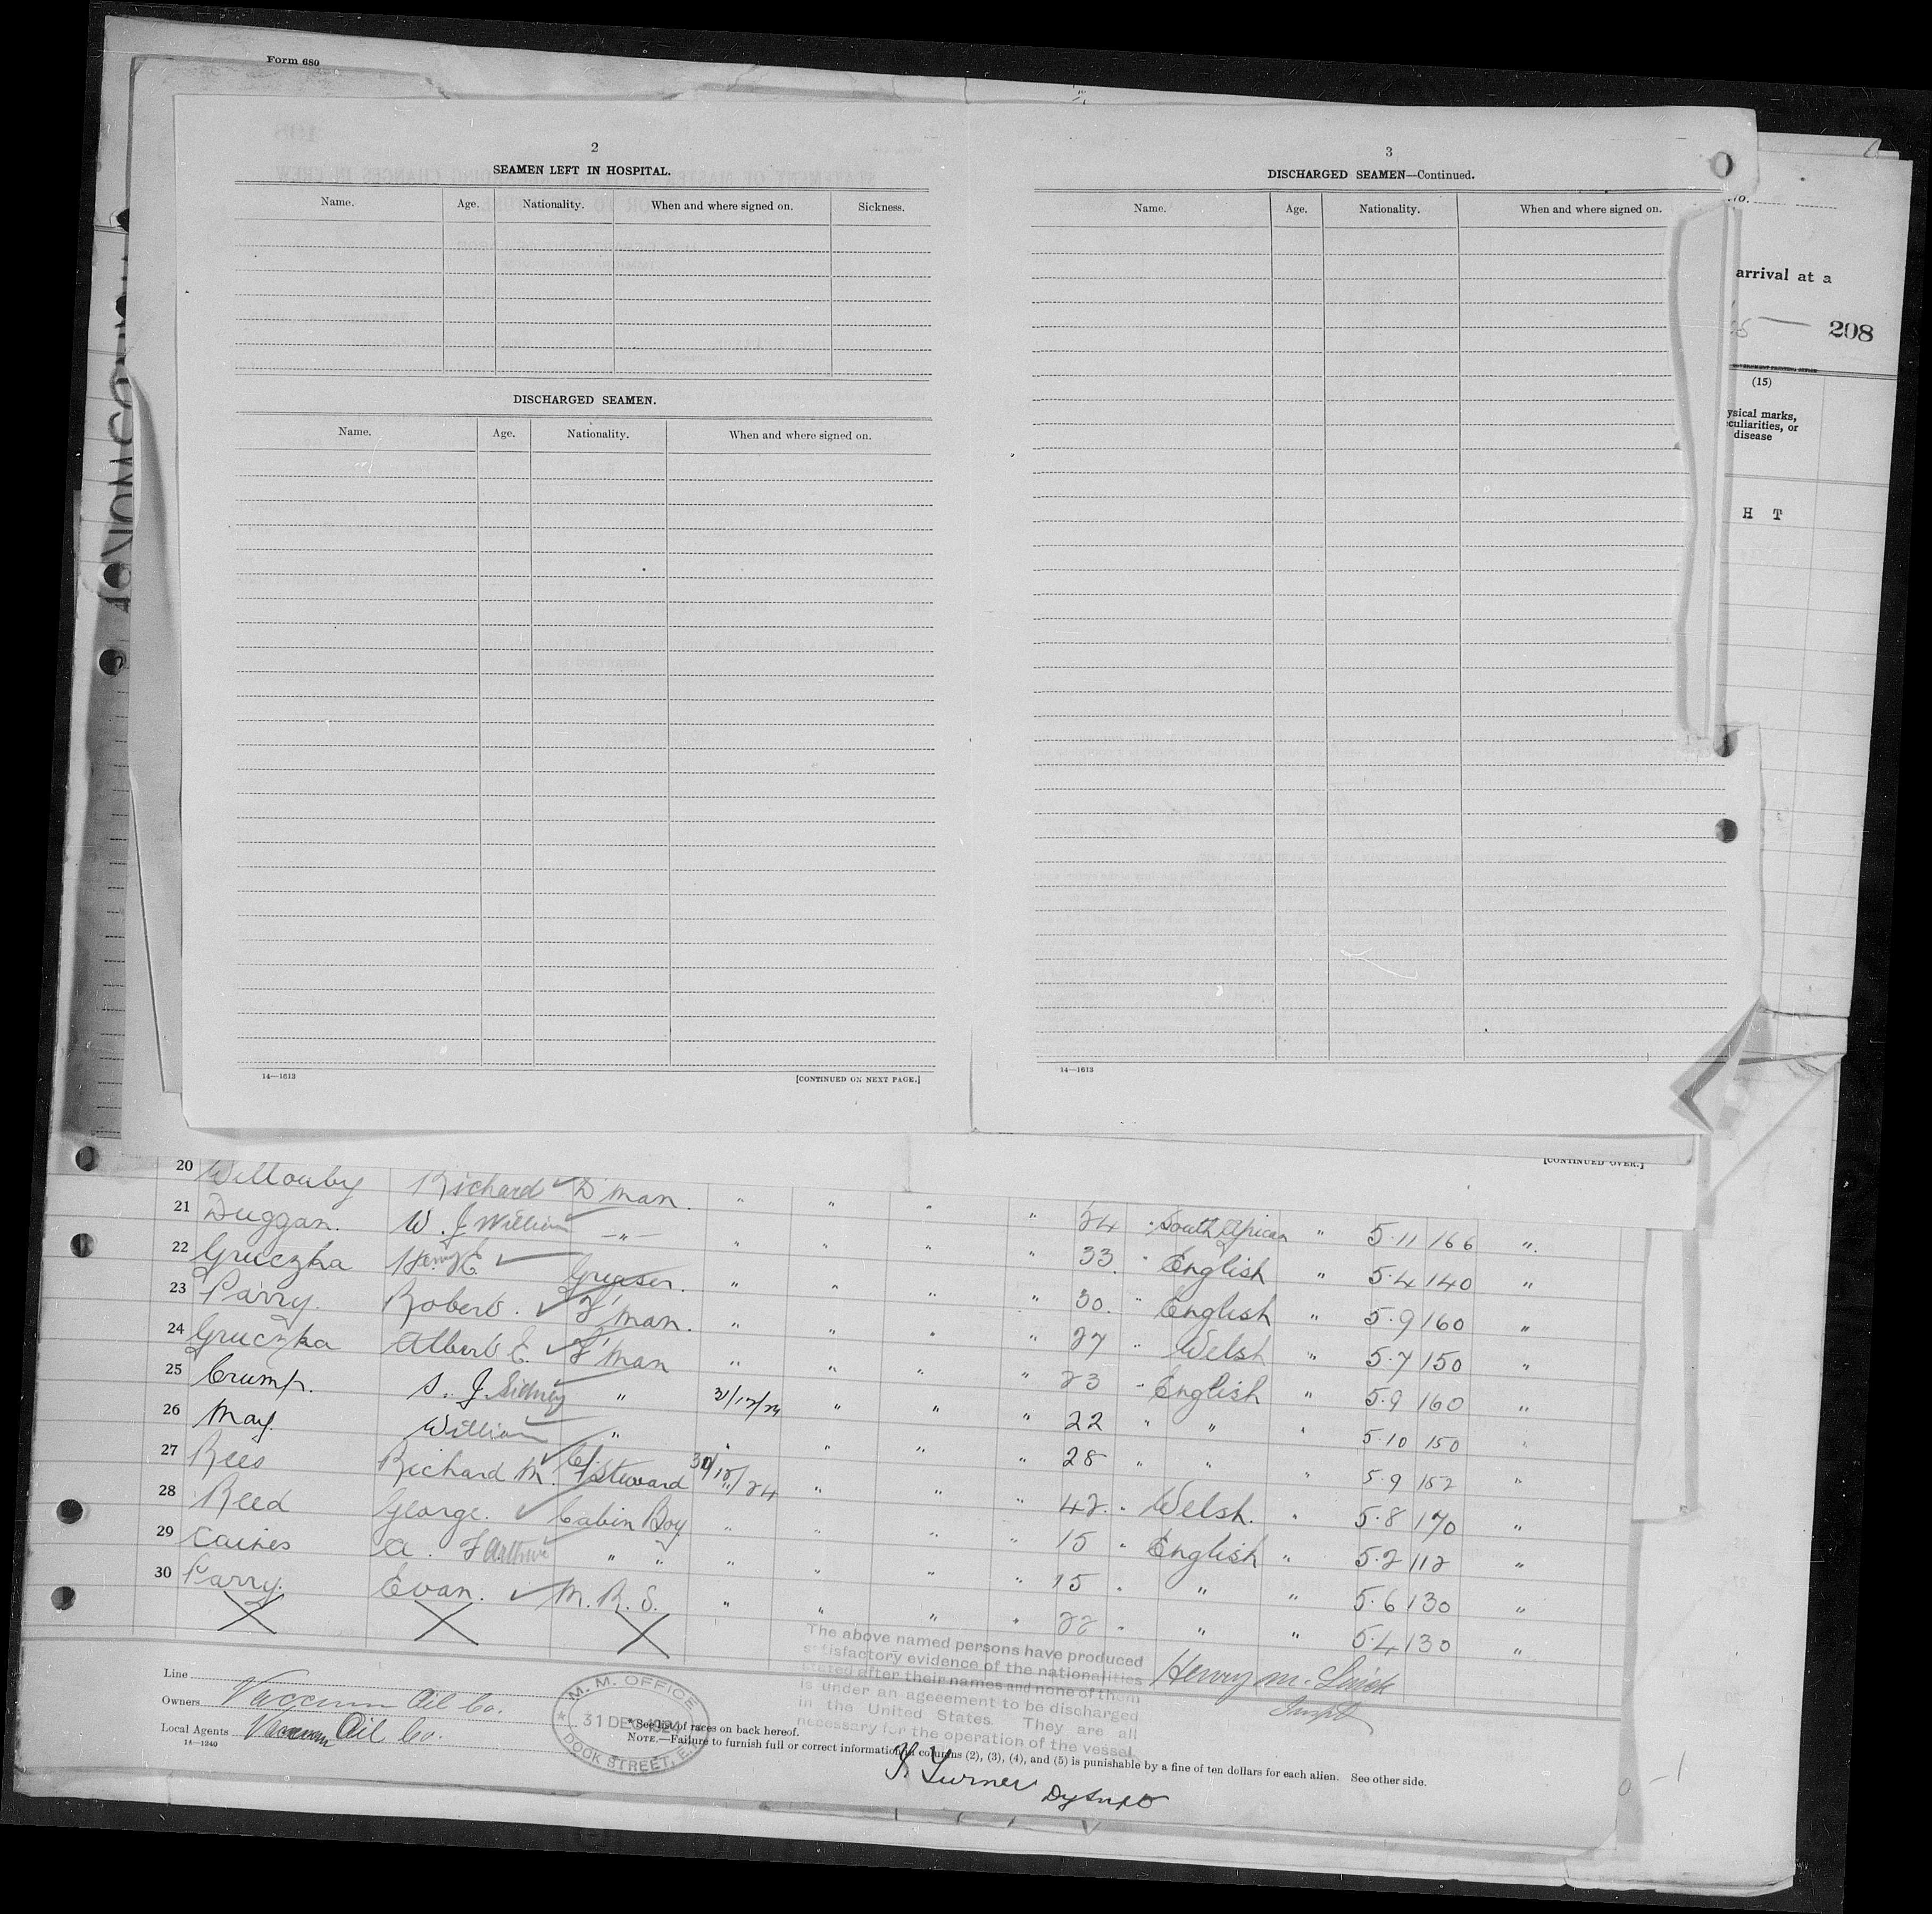 Form 680
2
SEAMEN LEFT IN HOSPITAL.
Name. Age. Nationality. When and where signed on. Sickness.
DISCHARGED SEAMEN.
Name. Age. Nationality. When and where signed on.
14—1613 [CONTINUED ON NEXT PAGE.]
3
DISCHARGED SEAMEN—Continued.
Name. Age. Nationality. When and where signed on.
14—1613
arrival at a
208
(15)
ysical marks,
eculiarities, or
disease
H T
[CONTINUED OVER.]
20 Willouby Richard D'man. " " " " 24 " South African " 5.11 166 "
21 Duggan. W. J William —"— " " " " 33 " English " 5.4 140 "
22 Gruczka Henry E. Greaser. " " " " 30. " English " 5.9 160 "
23 Parry. Robert. F'man. " " " " 27 " Welsh " 5.7 150 "
24 Gruczka Albert E. F'man " " " " 23 " English " 5.9 160 "
25 Crump. S. J. Sidney " 31/12/24 " " " 22 " " " 5.10 150 "
26 May. William " " " " " 28 " " " 5.9 152 "
27 Rees Richard M. C/Steward 30/12/24 " " " 42 " Welsh. " 5.8 170 "
28 Reed George. Cabin Boy " " " " 15 " English " 5.2 112 "
29 Caines A. F Arthur " " " " " " 15 " " " 5.6 130 "
30 Parry. Evan. M. R. S. " " " " 22 " " " 5.4 130 "
X X X
The above named persons have produced
satisfactory evidence of the nationalities
stated after their names and none of them
is under an ageeement to be discharged
in the United States. They are all
necessary for the operation of the vessel.
Henry M.
Line
Owners Vaccum Oil Co.
Local Agents Vacuum Oil Co.
14—1240
M. M. OFFICE
31 DEC 1924
DOCK STREET, E.
* See list of races on back hereof.
NOTE.—Failure to furnish full or correct information in columns (2), (3), (4), and (5) is punishable by a fine of ten dollars for each alien. See other side.
Turner